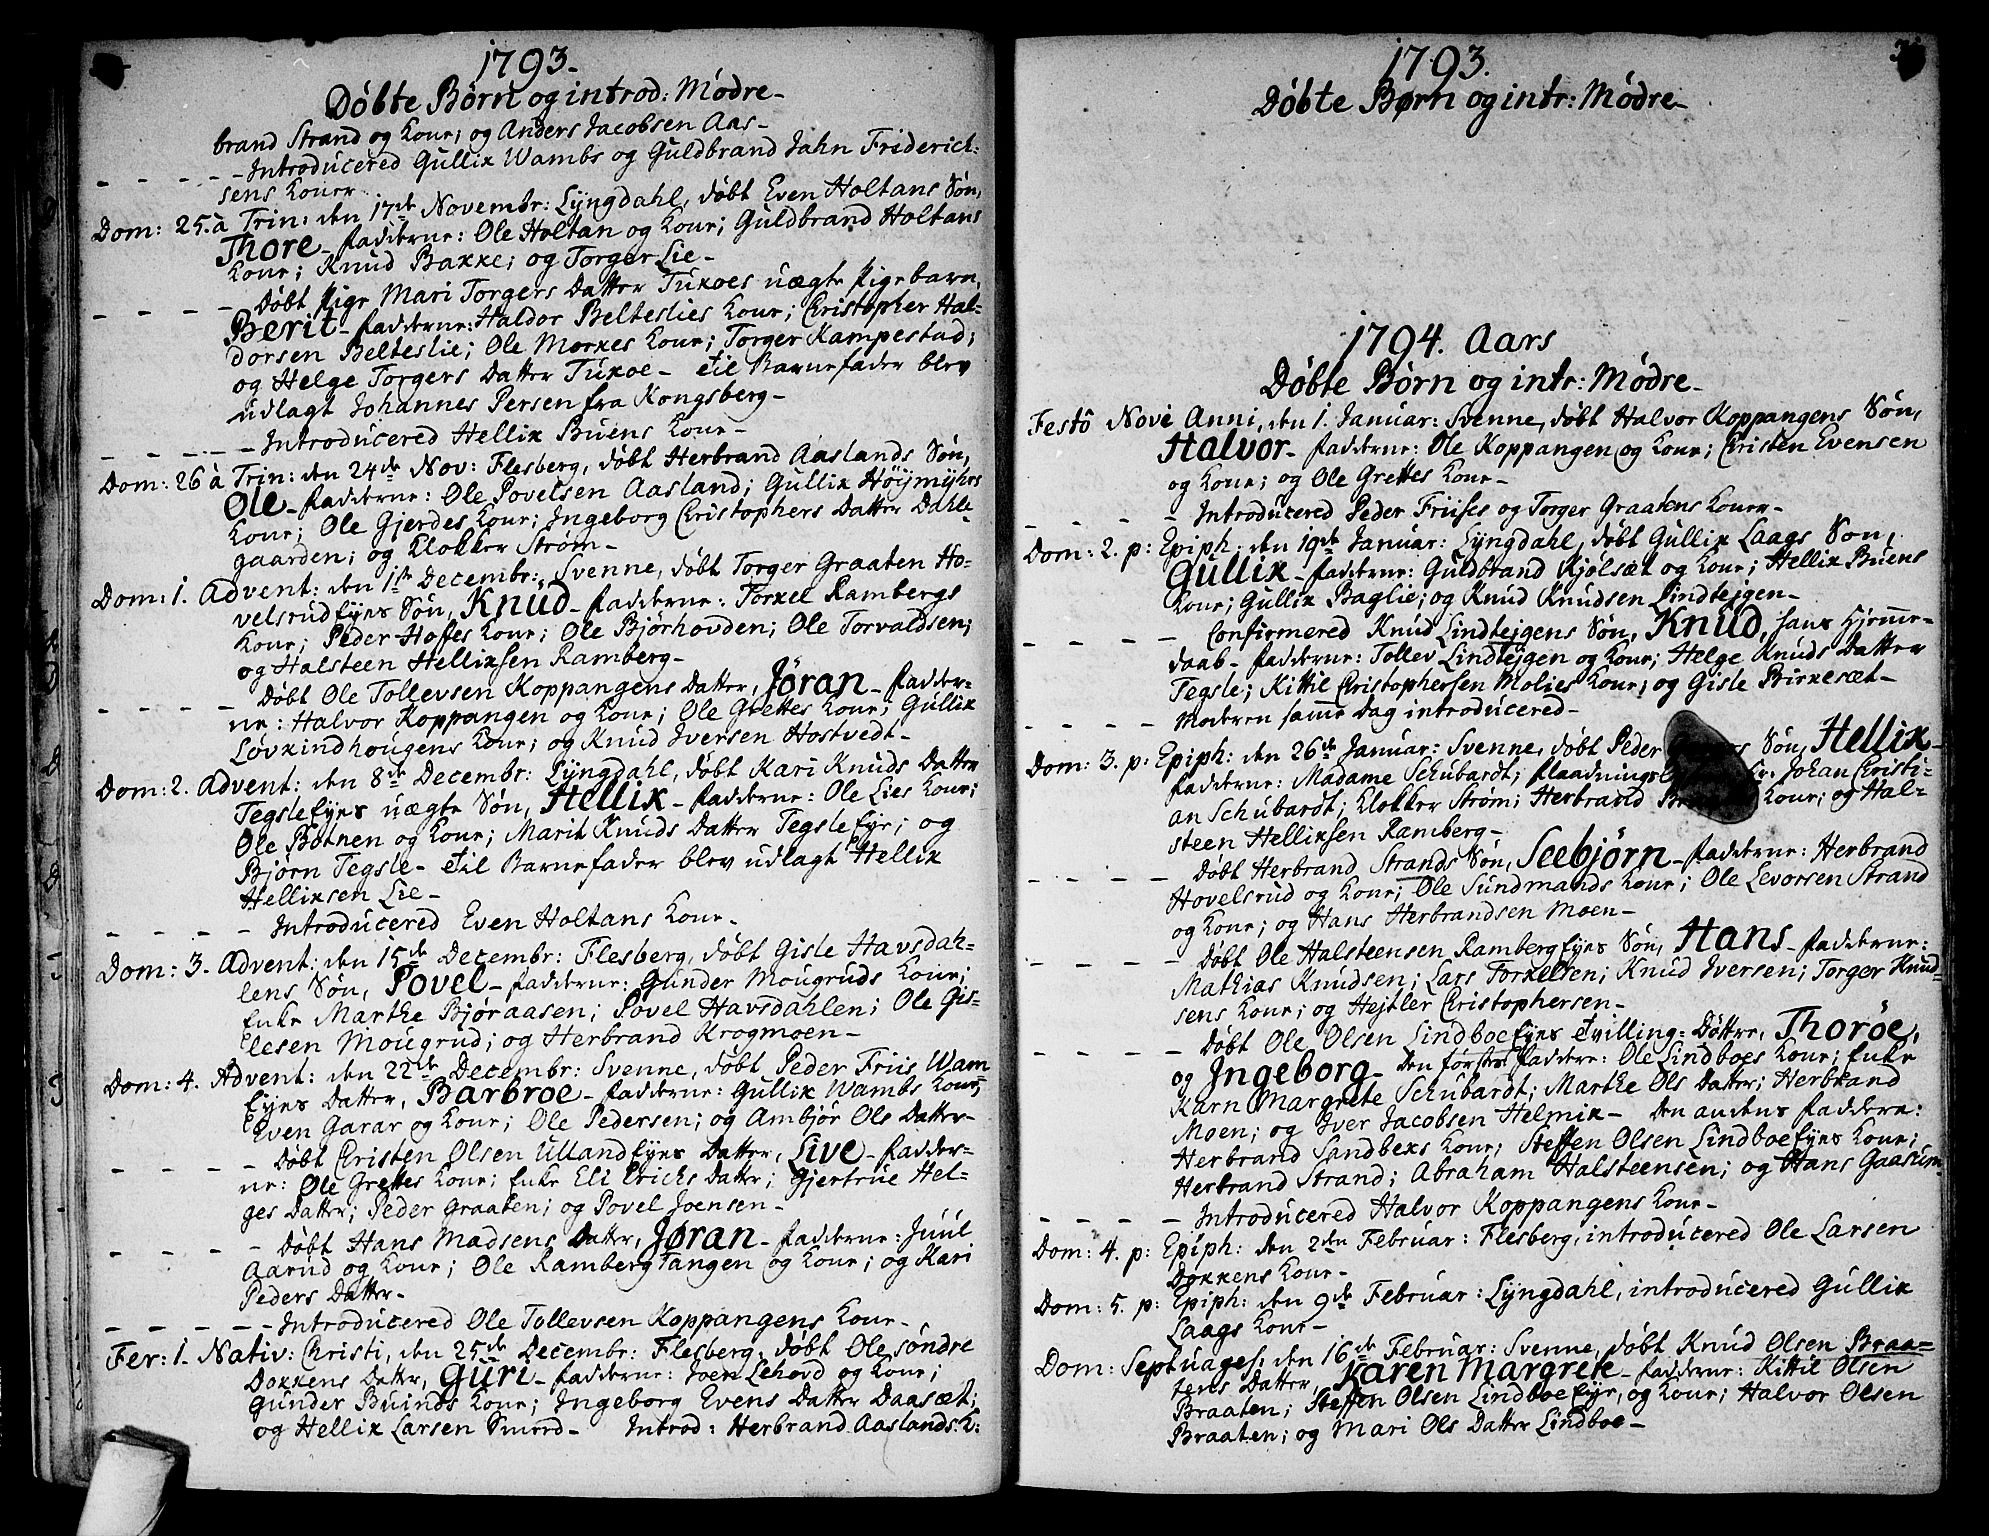 1793.
Døbte Børn og introd: Mødre
brand Strand og Kone; og Anders Jacobsen Aas
- - - - - Introducered Gullix Wambs og Guldbrand Jahn Friderich-
sens Koner
Dom: 25. à Trin: den 17de Novembr: Lÿngdahl, døbt Even Holtans Søn,
Thore - Fadderne: Ole Holtan og Kone; Guldbrand Holtans
Kone; Knud Bakke; og Torger Lie -
- - - - Døbt Pige Mari Torgers Datter Tukoes uægte Pigebarn,
Berit - Fadderne: Haldor Belteslies Kone; Christopher Hal-
dorsen Belteslie; Ole Morkes Kone; Torger Kampestad;
og Helge Torgers Datter Tukoe - Til Barnefader blev
udlagt Johannes Persen fra Kongsberg -
- - - - - Introducered Hellix Buens Kone -
Dom: 26 à Trin: den 24de Nov: Flesberg, døbt Herbrand Aaslands Søn,
Ole - Fadderne: Ole Povelsen Aasland; Gullix Høijmÿhrs
Kone; Ole Gjerdes Kone; Ingeborg Christophers Datter Dahle-
gaarden; og Klokker Strøm -
Dom: 1. Advent: den 1ste Decembr: Svenne, døbt Torger Graaten Ho-
velsrudEÿes Søn, Knud - Fadderne: Torkel Rambergs
Kone; Peder Hoffes Kone; Ole Bjørhovden; Ole Torvaldsen;
og Halsteen Hellixsen Ramberg -
- - - - Døbt Ole Tollevsen Koppangens Datter, Jøran - Fadder-
ne: Halvor Koppangen og Kone; Ole Grettes Kone; Gullix
Løvkindhougens Kone; og Knud Iversen Hostvedt -
Dom: 2. Advent: den 8de Decembr: Lÿngdahl, døbt Kari Knuds Datter
TegsleEÿes uægte Søn, Hellix - Fadderne: Ole Lies Kone;
Ole Botnen og Kone; Marit Knuds Datter TegsleEÿe; og
Bjørn Tegsle - Til Barnefader blev udlagt Hellix
Hellixsen Lie -
- - - - Introducered Even Holtans Kone -
Dom: 3. Advent: den 15de Decembr: Flesberg, døbt Gisle Havsdah-
lens Søn, Povel - Fadderne: Gunder Mougruds Kone;
Enke Marthe Bjøraasen; Povel Havsdahlen; Ole Gis-
lesen Mougrud; og Herbrand Krogmoen -
Dom: 4. Advent: den 22de Decembr: Svenne, døbt Peder Friis Wam
Eÿes Datter, Barbroe - Fadderne: Gullix Wambs Kone;
Even Garar og Kone; Ole Pedersen; og Ambjør Ols Datter -
- - - - Døbt Christen Olsen UllandEÿes Datter, Live - Fadder-
ne: Ole Grettes Kone; Enke Eli Erichs Datter; Gjertrue Hel-
ges Datter; Peder Graaten; og Povel Joensen -
- - - - Døbt Hans Madsens Datter, Jøran - Fadderne: Juul
Aarud og Kone; Ole RambergTangen og Kone; og Kari
Peders Datter -
- - - - - Introducered Ole Tollevsen Koppangens Kone -
Fer: 1. Nativ: Christi, den 25de Decembr: Flesberg, døbt Ole søndre
Dokkens Datter, Guri - Fadderne: Joen Lehovd og Kone;
Gunder Buinds Kone; Ingeborg Evens Datter Daasæt;
og Hellix Larsen - Introd: Herbrand Aaslands K:
1793.
Døbte Børn og intr: Mødre
1794. Aars
Døbte Børn og intr: Mødre
Festô Novi Anni, den 1. Januar: Svenne, døbt Halvor Koppangens Søn,
Halvor - Fadderne: Ole Koppangen og Kone; Christen Evensen
og Kone; og Ole Grettes Kone -
- - - - Introducered Peder Friises og Torger Graatens Koner -
Dom: 2. p: Epiph: den 19de Januar: Lÿngdahl, døbt Gullix Laags Søn,
Gullix - Fadderne: Guldbrand Kjølsæt og Kone; Hellix Buens
Kone; Gullix Baglie; og Knud Knudsen Lindtejgen -
- - - - Confirmered Knud Lindtejgens Søn, Knud, hans Hjemme-
daab - Fadderne: Tollev Lindtejgen og Kone; Helge Knuds Datter
Tegsle; Kittil Christophersen Molies Kone; og Gisle Birkesæt -
- - - - Moderen samme Dag introducered -
Dom: 3. p: Epiph: den 26de Januar: Svenne, døbt Peder Søn, Hellix -
Fadderne: Madame Schubardt; Johan Christi-
an Schubardt; Klokker Strøm; Herbrand Kone; og Hal-
steen Hellixsen Ramberg -
- - - - Døbt Herbrand Strands Søn, Seebjørn - Fadderne: Herbrand
Hovelsrud og Kone; Ole Sundmands Kone; Ole Levorsen Strand
og Kone; og Hans Herbrandsen Moen -
- - - - Døbt Ole Halsteensen RambergEÿes Søn, Hans - Fadderne:
Mathias Knudsen; Lars Torkelsen; Knud Iversen; Torger Knud-
sens Kone; og Hejtler Christophersen -
- - - - Døbt Ole Olsen LindboeEÿes Tvilling-Døttre, Thorøe,
og Ingeborg - Den førstes Faddere: Ole Lindboes Kone; Enke
Karn Margrete Schubardt; Marthe Ols Datter; Herbrand
Moen; og Iver Jacobsen Helmik - Den andens Faddere:
Herbrand Sandbeks Kone; Steffen Olsen LindboeEÿes Kone;
Herbrand Strand; Abraham Halsteensen; og Hans Gaasum
- - - - Introducered Halvor Koppangens Kone -
Dom: 4. p: Epiph: den 2den Februar: Flesberg, introducered Ole Larsen
Dokkens Kone -
Dom: 5. p: Epiph: den 9de Februar: Lÿngdahl, introducered Gullix
Laags Kone -
Dom: Septuages, den 16de Februar: Svenne, døbt Knud Olsen Braa-
tens Datter, Karen Margrete - Fadderne: Kittil Olsen
Braaten; Steffen Olsen LindboeEÿe, og Kone; Halvor Olsen
Braaten; og Mari Ols Datter Lindboe -